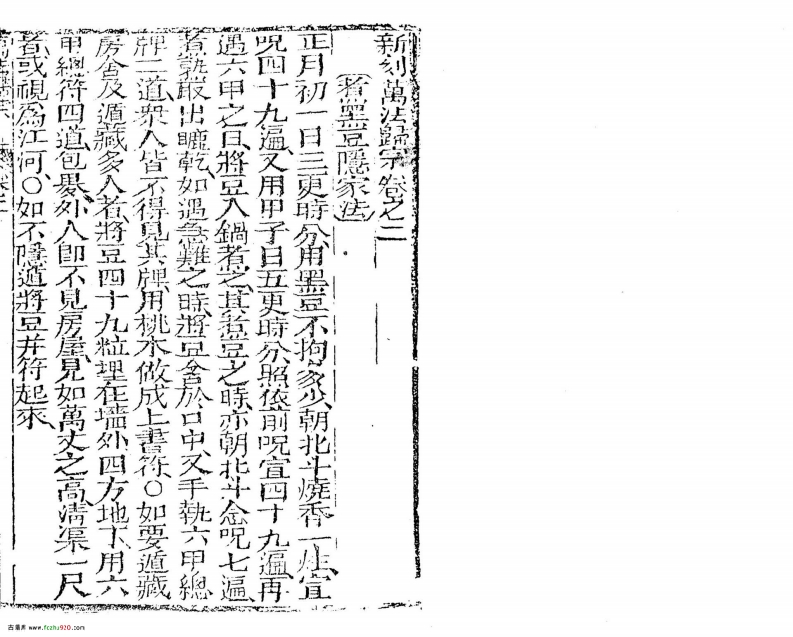 新刻萬法歸宗卷之二
煮黑豆隱家法
正月初一日三更時分用黑豆不拘多少朝北斗燒香一炷宣
呪四十九遍又用甲子日五更時分照依前呪宣四十九遍再
遇六甲之日將豆入鍋煮之其煮豆之時亦朝北斗念呪七遍
煮熟取出曬乾如遇急難之時將豆含於口中又手執六甲總
牌二道衆人皆不得見其牌用桃木做成上書符○如要遁藏
房舍及遁藏多人者將豆四十九粒埋在墻外四方地下用六
甲總符四道包裹外人卽不見房屋見如萬丈之高淸渠一尺
者或視爲江河○如不隱遁將豆幷符起來
古籍库 www.fozhu920.com